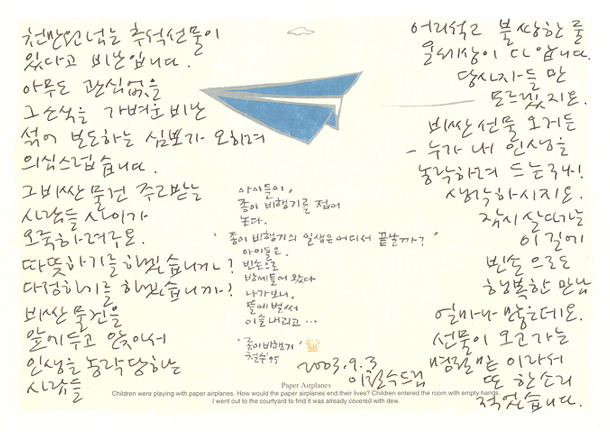 천만원 넘는 추석선물이
있다고 비난입니다.
아무도 관심없을
그 소식을 가벼운 비난
섞어 보도하는 심뽀가 오히려
의심스럽습니다.
그 비싼 물건 주고받는
사람들 사이가
오죽하려구요.
따뜻하기를 하겠습니까?
다정하기를 하겠습니까?
비싼 물건을
앞에 두고 앉아서
인생을 농락당하는
사람들
어리석고 불쌍한 줄
온세상이 다 압니다.
당사자들만
모르겠지요.
비싼 선물 오거든
- 누가 내 인생을
농락하려 드는구나!
생각하시지요.
잠시 살다가는
이 길에
빈손으로도
행복한 만남
얼마나 많은데요.
선물이 오고가는
명절 밑이라서
또 한소리
적었습니다.
2003. 9. 3
이철수 드림
아이들이,
종이 비행기를 접어
논다.
' 종이 비행기의 일생은 어디서 끝날까? '
아이들은,
빈손으로
방에 들어 왔다
나가보니,
뜰에 벌써
이슬 내리고…
'종이비행기'
철수 '95
Paper Airplanes
Children were playing with paper airplanes. How would the paper airplanes end their lives? Children entered the room with empty hands.
I went out to the courtyard to find it was already covered with dew.